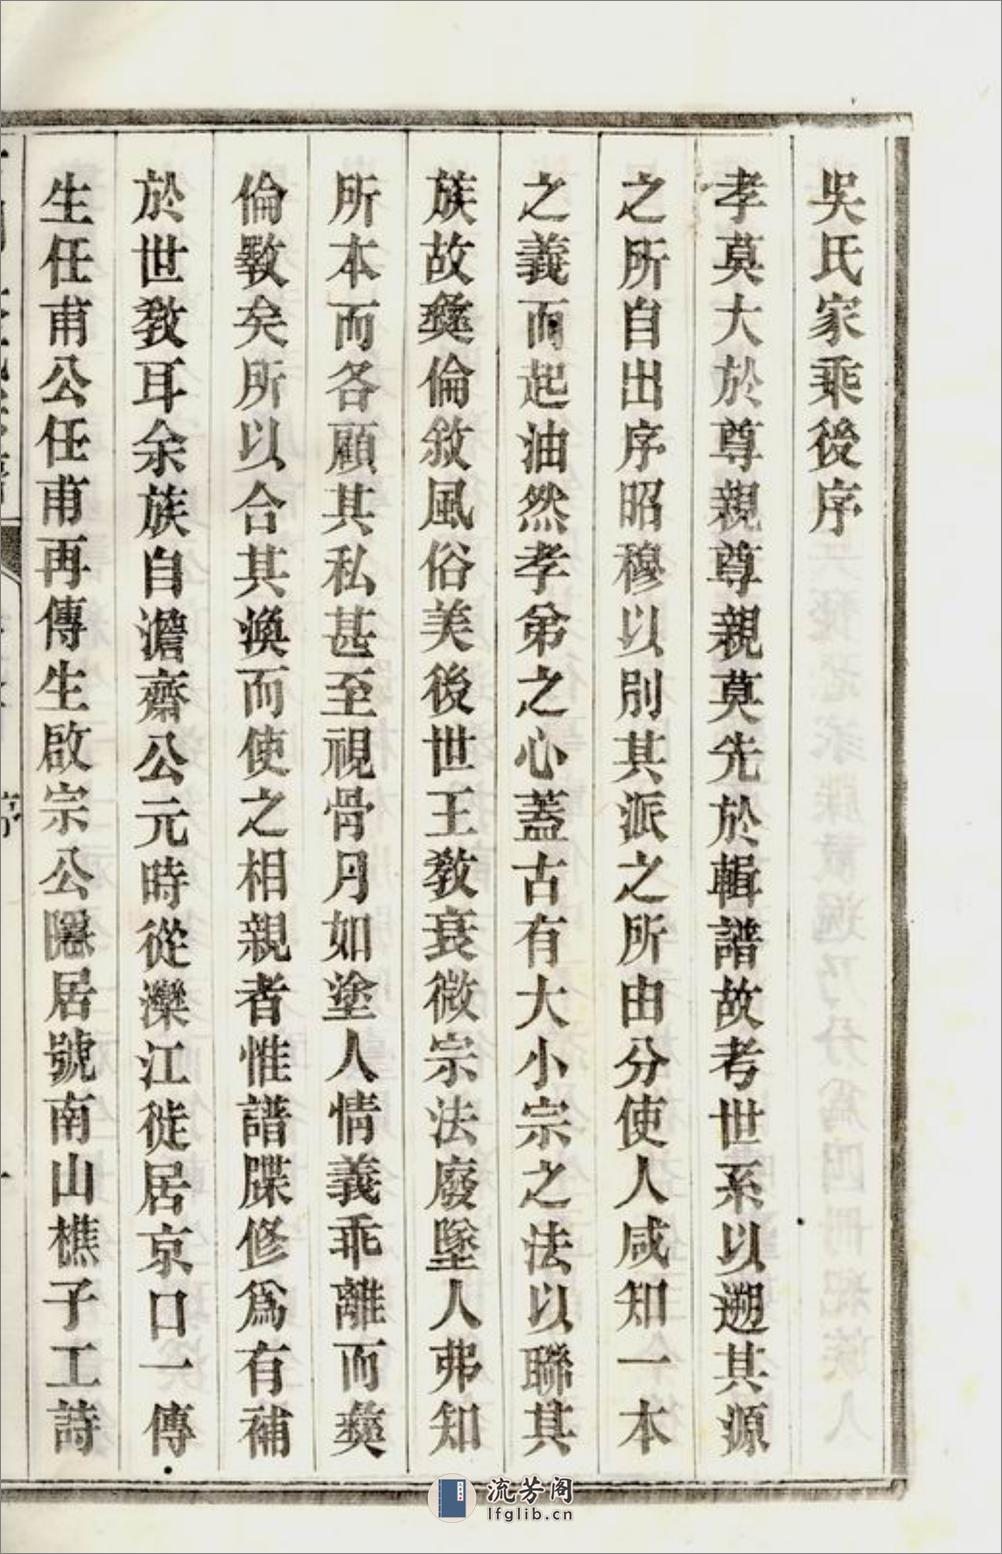 吳氏家乘後序
孝莫大於尊親尊親莫先於輯譜故考世系以遡其源
之所自出序昭穆以別其派之所由分使人咸知一本
之義而起油然孝弟之心蓋古有大小宗之法以聯其
族故彝倫敘風俗美後世王敎衰微宗法廢墜人弗知
所本而各顧其私甚至視骨肉如塗人情義乖離而彝
倫斁矣所以合其渙而使之相親者惟譜牒修爲有補
於世敎耳余族自澹齋公元時從灤江徙居京口一傳
生任甫公任甫再傳生啟宗公隱居號南山樵子工詩
序
流芳阁
lfglib.cn